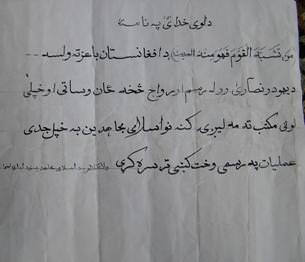 دلوی خدای په نامه
من تشبه القوم فهو منه الحدیث د افغانستان باعزته ولسه ---
دیهود و نصاری دوله رسم او رواج څخه ځان وساتی او خپلی
لونی مکتب ته مه لیږی. کنه نو اسلامی مجاهدین به خپل جدی
عملیات په رسمی وخت کښی تر سره کړی